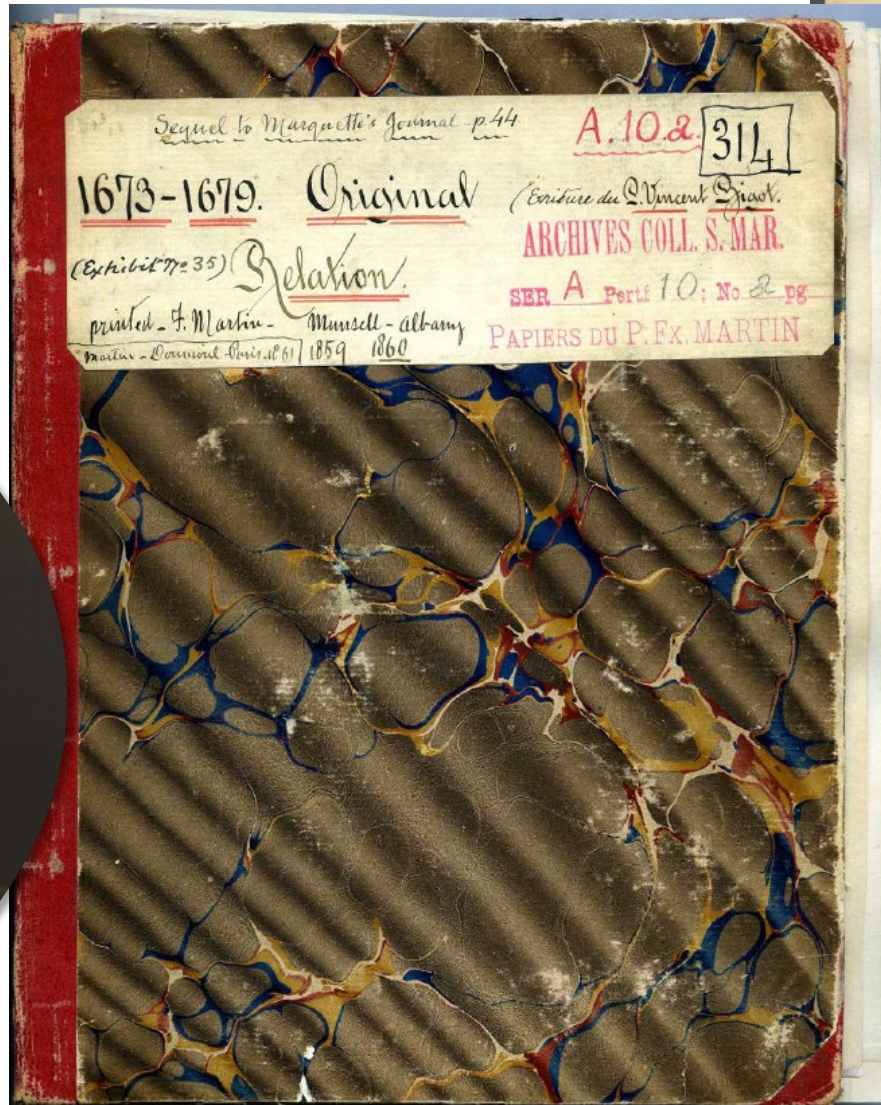 Sequel to Marquette's Journal - p. 44
A. 10. 2.
314
1673-1679. Original
(Ecriture du P. Vincent Bigot.
ARCHIVES COLL. S. MAR.
(Exhibit Nº 35) Relation.
SER A Portf 10; No 2 pg
printed - F. Martin - Munsell - Albany
PAPIERS DU P. FX. MARTIN
Martin - Douniol - Paris. 1861 1859 1860